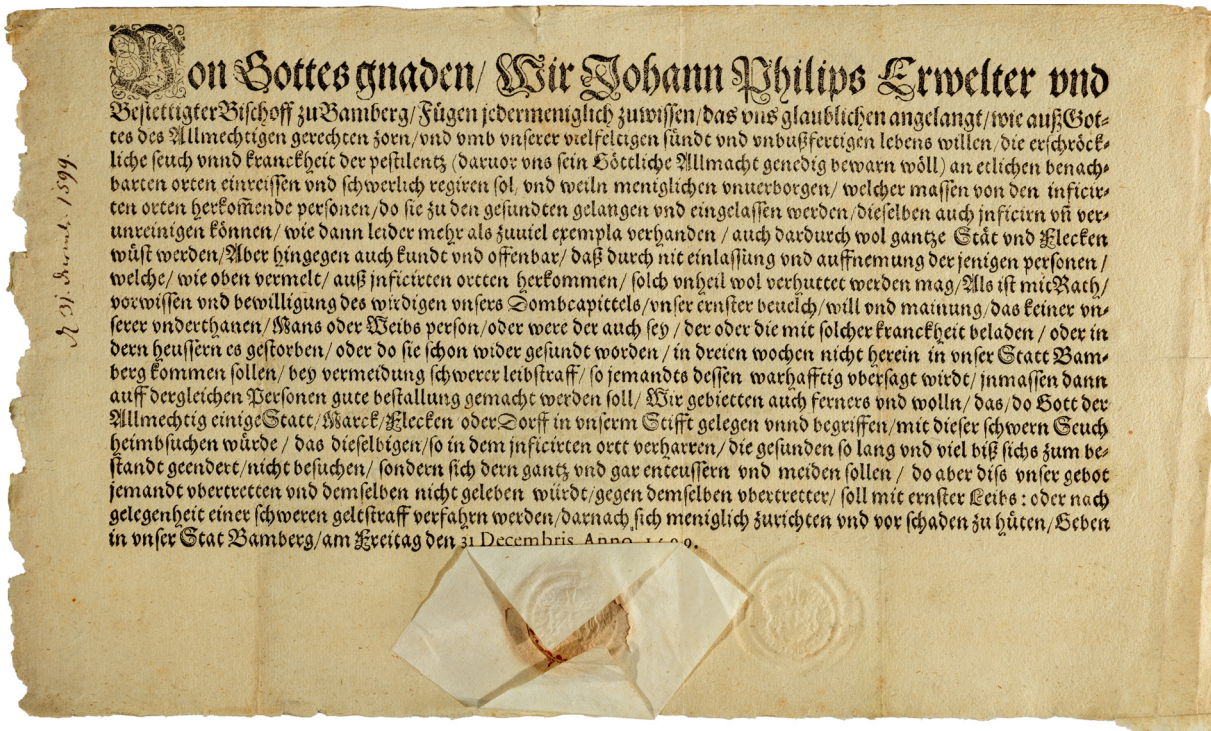 Von Gottes gnaden/ Wir Johann Philips Erwelter vnd
Bestettigter Bischoff zu Bamberg/ Fügen jedermeniglich zuwissen/ das vns glaublichen angelangt/ wie auß Got-
tes des Allmechtigen gerechten zorn/ vnd vmb vnserer vielfeltigen sündt vnd vnbußfertigen lebens willen/ die erschröck-
liche seuch vnnd kranckheit der pestilentz (daruor vns sein Göttliche Allmacht genedig bewarn wöll) an etlichen benach-
barten orten einreissen vnd schwerlich regiren sol/ vnd weiln meniglichen vnuerborgen/ welcher massen von den inficir-
ten orten herkom̃ende personen/ do sie zu den gesundten gelangen vnd eingelassen werden/ dieselben auch jnficirn vn̄ ver-
unreinigen können/ wie dann leider mehr als zuuiel exempla verhanden/ auch dardurch wol gantze Stät vnd Flecken
wüst werden/ Aber hingegen auch kundt vnd offenbar/ daß durch nit einlassung vnd auffnemung der jenigen personen/
welche/ wie oben vermelt/ auß jnficirten ortten herkommen/ solch vnheil wol verhuttet werden mag/ Als ist mit Rath/
vorwissen vnd bewilligung des wirdigen vnsers Dombcapittels/ vnser ernster beuelch/ will vnd mainung/ das keiner vn-
serer vnderthanen/ Mans oder Weibs person/ oder were der auch sey/ der oder die mit solcher kranckheit beladen/ oder in
dern heussern es gestorben/ oder do sie schon wider gesundt worden/ in dreien wochen nicht herein in vnser Statt Bam-
berg kommen sollen/ bey vermeidung schwerer leibstraff/ so jemandts dessen warhafftig vbersagt wirdt/ jnmassen dann
auff dergleichen Personen gute bestallung gemacht werden soll/ Wir gebietten auch ferners vnd wolln/ das/ do Gott der
Allmechtig einige Statt/ Marck/ Flecken oder Dorff in vnserm Stifft gelegen vnnd begriffen/ mit dieser schwern Seuch
heimbsuchen würde/ das dieselbigen/ so in dem jnficirten ortt verharren/ die gesunden so lang vnd viel biß sichs zum be-
standt geendert/ nicht besuchen/ sondern sich dern gantz vnd gar enteussern vnd meiden sollen/ do aber diss vnser gebot
jemandt vbertretten vnd demselben nicht geleben würdt/ gegen demselben vbertretter/ soll mit ernster Leibs: oder nach
gelegenheit einer schweren geltstraff verfahrn werden/ darnach sich meniglich zurichten vnd vor schaden zu hüten/ Geben
in vnser Stat Bamberg/ am Freitag den 31 Decembris Anno 1599.
1599